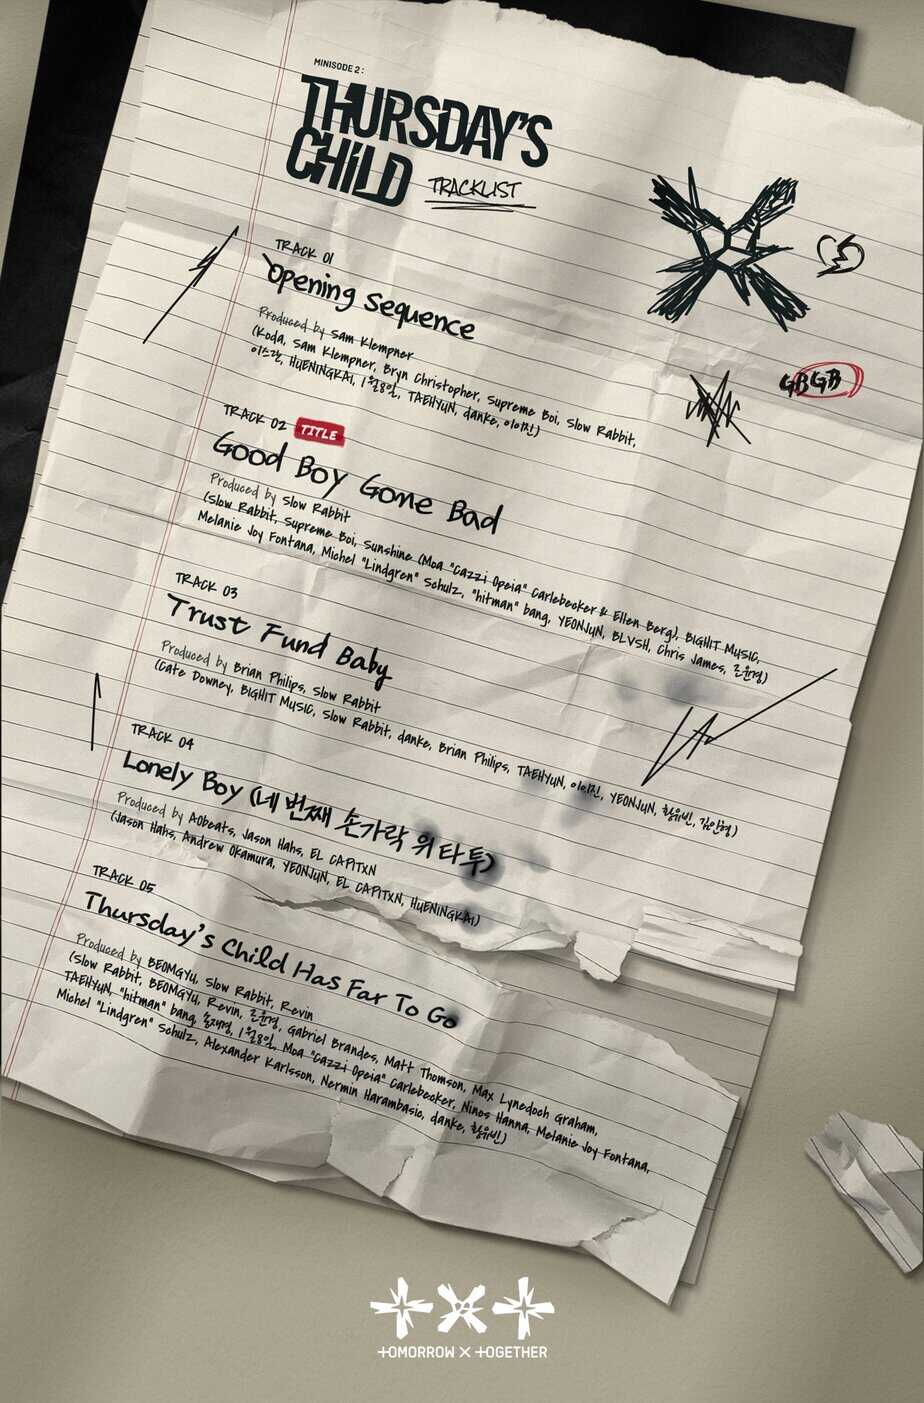 MINISODE 2 :
THURSDAY'S
CHILD
TRACKLIST
GBGB
TRACK 01
Opening Sequence
Produced by Sam Klempner
(Koda, Sam Klempner, Bryn Christopher, Supreme Boi, Slow Rabbit,
이스란, HUENINGKAI, 1월8일, TAEHYUN, danke, 이이진)
TRACK 02 TITLE
Good Boy Gone Bad
Produced by Slow Rabbit
(Slow Rabbit, Supreme Boi, Sunshine (Moa "Cazzi Opeia" Carlebecker & Ellen Berg), BIGHIT MUSIC,
Melanie Joy Fontana, Michel "Lindgren" Schulz, "hitman" bang, YEONJUN, BLVSH, Chris James, 조윤경)
TRACK 03
Trust Fund Baby
Produced by Brian Philips, Slow Rabbit
(Cate Downey, BIGHIT MUSIC, Slow Rabbit, danke, Brian Philips, TAEHYUN, 이이진, YEONJUN, 황유빈, 김인형)
TRACK 04
Lonely Boy (네 번째 손가락 위 타투)
Produced by AObeats, Jason Hahs, EL CAPITXN
(Jason Hahs, Andrew Okamura, YEONJUN, EL CAPITXN, HUENINGKAI)
TRACK 05
Thursday's Child Has Far To Go
Produced by BEOMGYU, Slow Rabbit, Revin
(Slow Rabbit, BEOMGYU, Revin, 조윤경, Gabriel Brandes, Matt Thomson, Max Lynedoch Graham,
TAEHYUN, "hitman" bang, 1월8일, Moa "Cazzi Opeia" Carlebecker, Ninos Hanna, Melanie Joy Fontana,
Michel "Lindgren" Schulz, Alexander Karlsson, Nermin Harambasic, danke, 황유빈)
TOMORROW X TOGETHER